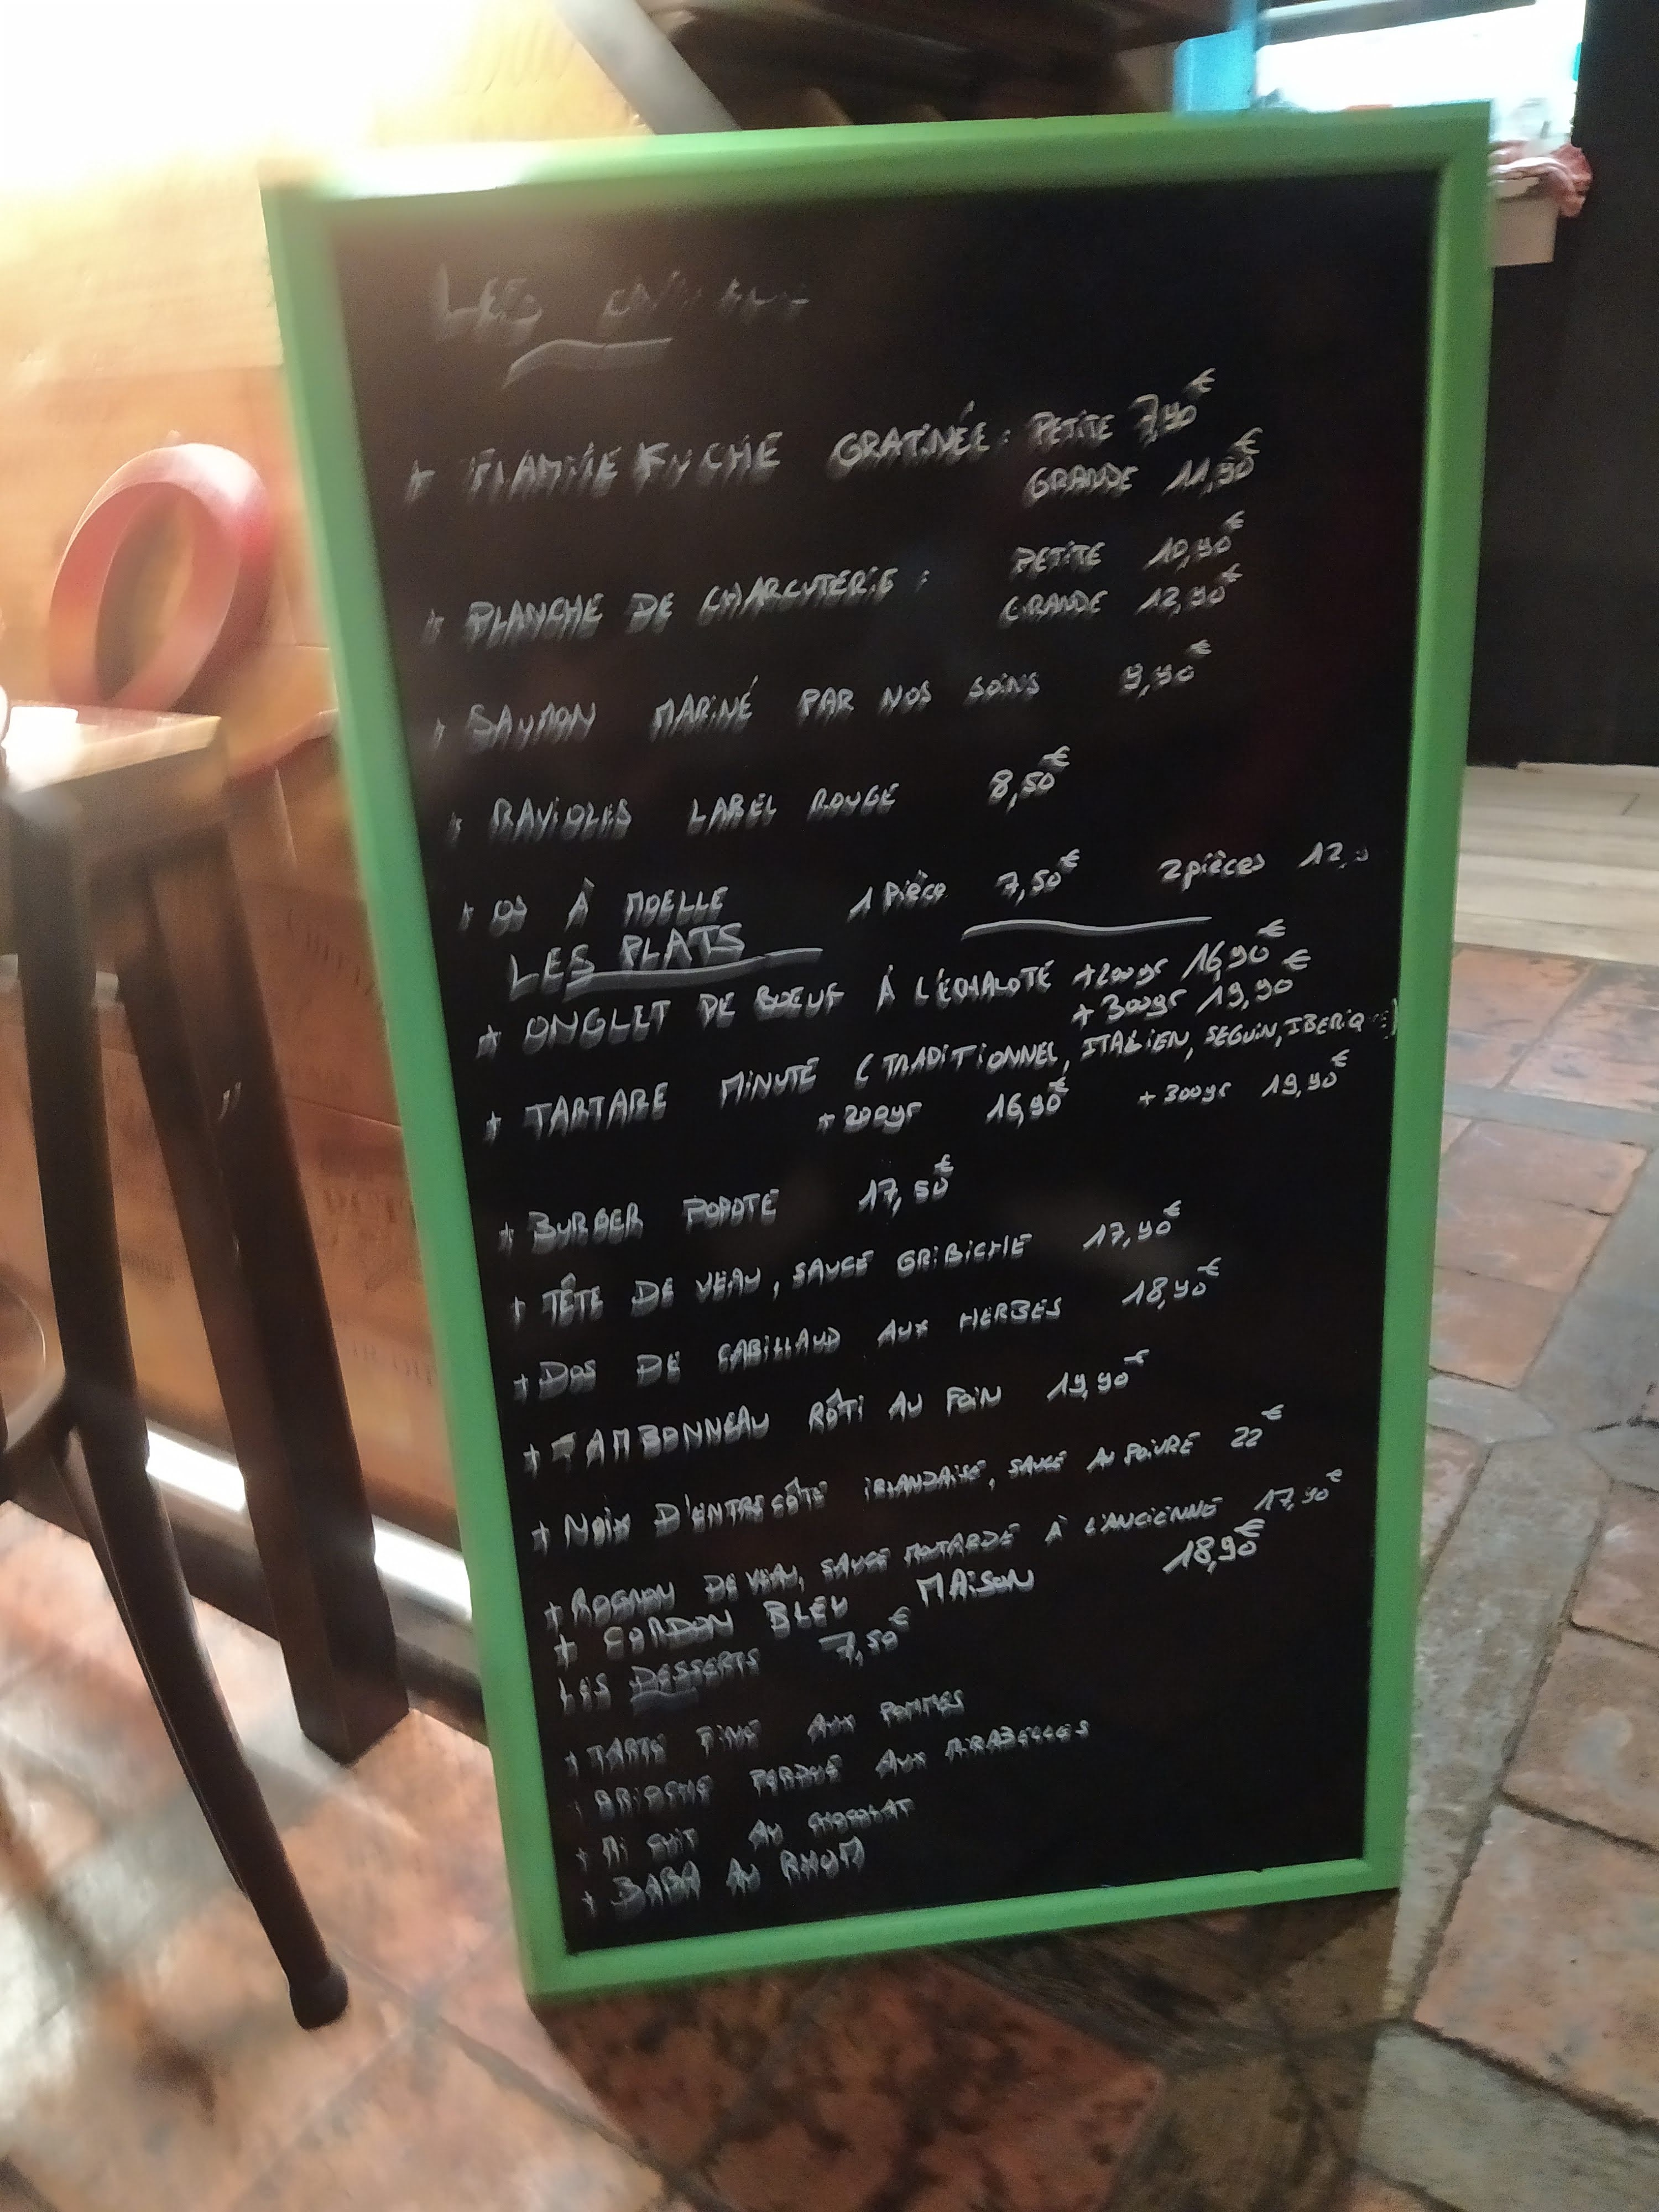 LES
+ FLAMMEKUCHE GRATINÉE : PETITE 7,90€
GRANDE 11,90€
+ PLANCHE DE CHARCUTERIE : PETITE 10,90€
GRANDE 12,90€
+ SAUMON MARINÉ PAR NOS SOINS 9,90€
+ RAVIOLES LABEL ROUGE 8,50€
+ OS À MOELLE 1 Pièce 7,50€ 2 pièces
LES PLATS
+ ONGLET DE BŒUF À L'ÉCHALOTE +200gr 16,90€
+ 300gr 19,90€
+ TARTARE MINUTE (TRADITIONNEL, ITALIEN, SEGUIN, IBERIQUE)
+ 200gr 16,90€ + 300gr 19,90€
+ BURGER POPOTE 17,50€
+ TÊTE DE VEAU, SAUCE GRIBICHE 17,90€
+ DOS DE CABILLAUD AUX HERBES 18,90€
+ JAMBONNEAU RÔTI AU FOIN 19,90€
+ NOIX D'ENTRECÔTE IRLANDAISE, SAUCE AU POIVRE 22€
+ ROGNON DE VEAU, SAUCE MOUTARDE À L'ANCIENNE 17,90€
+ CORDON BLEU MAISON 18,90€
LES DESSERTS 7,50€
+ TARTE FINE AUX POMMES
+ BRIOCHE PERDUE AUX MIRABELLES
+ MI CUIT AU CHOCOLAT
+ BABA AU RHUM